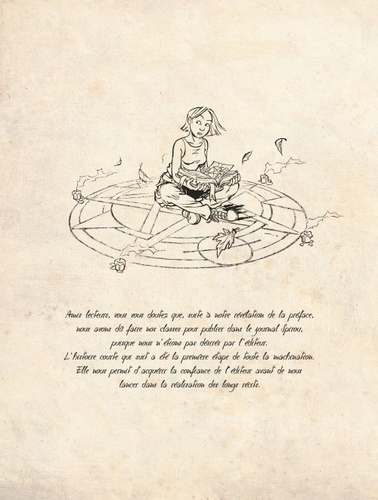 Amis lecteurs, vous vous doutez que, suite à notre révélation de la préface,
nous avons dû faire nos classes pour publier dans le journal Spirou,
puisque nous n'étions pas désirés par l'éditeur.
L'histoire courte qui suit a été la première étape de toute la machination.
Elle nous permit d'acquérir la confiance de l'éditeur avant de nous
lancer dans la réalisation des longs récits.